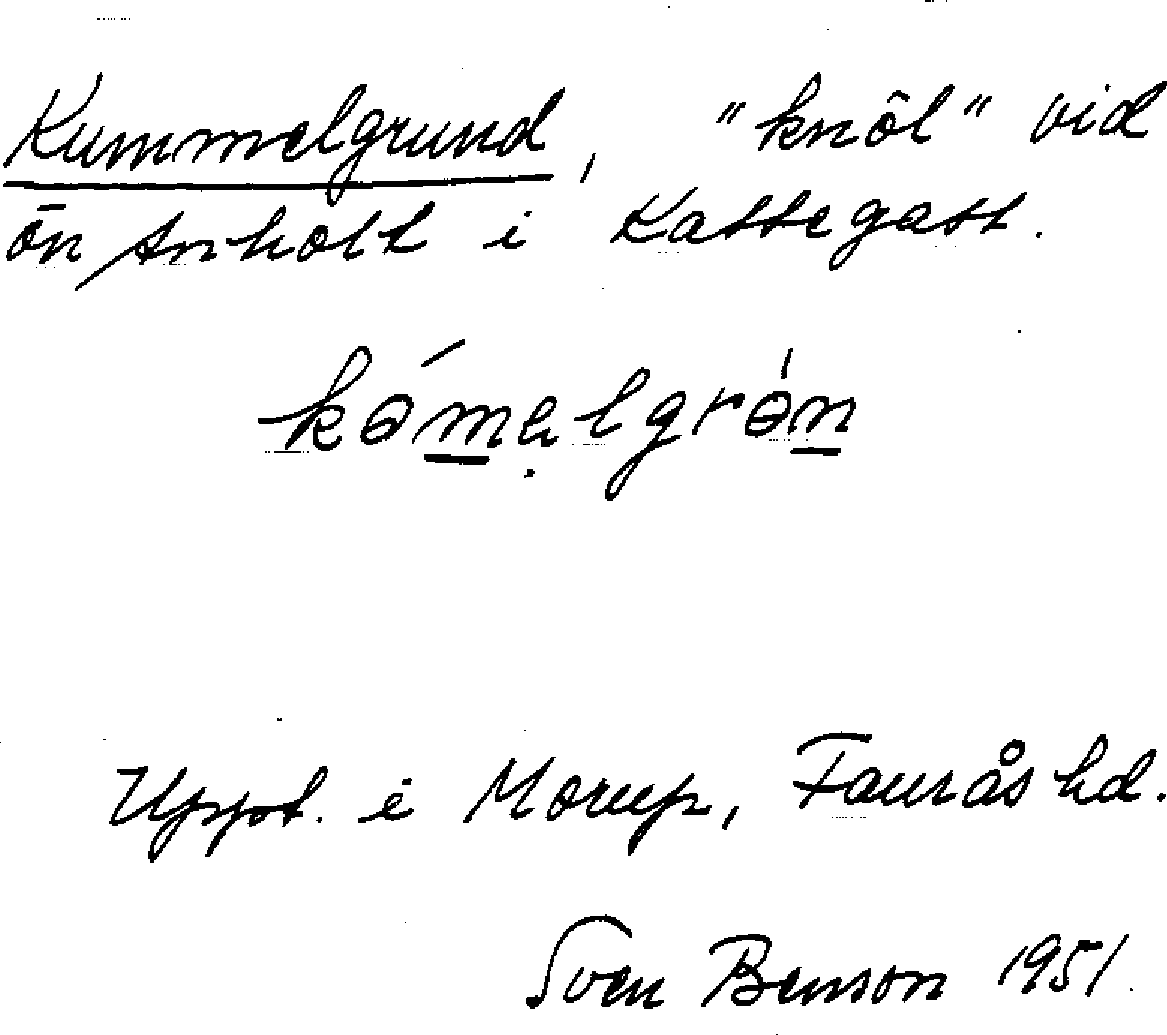 Kummelgrund, "knöl" vid
ön Anholt i Kattegatt.
kө́məlgrө̀n
Uppt. i Morup, Faurås hd.
Sven Benson 1951.